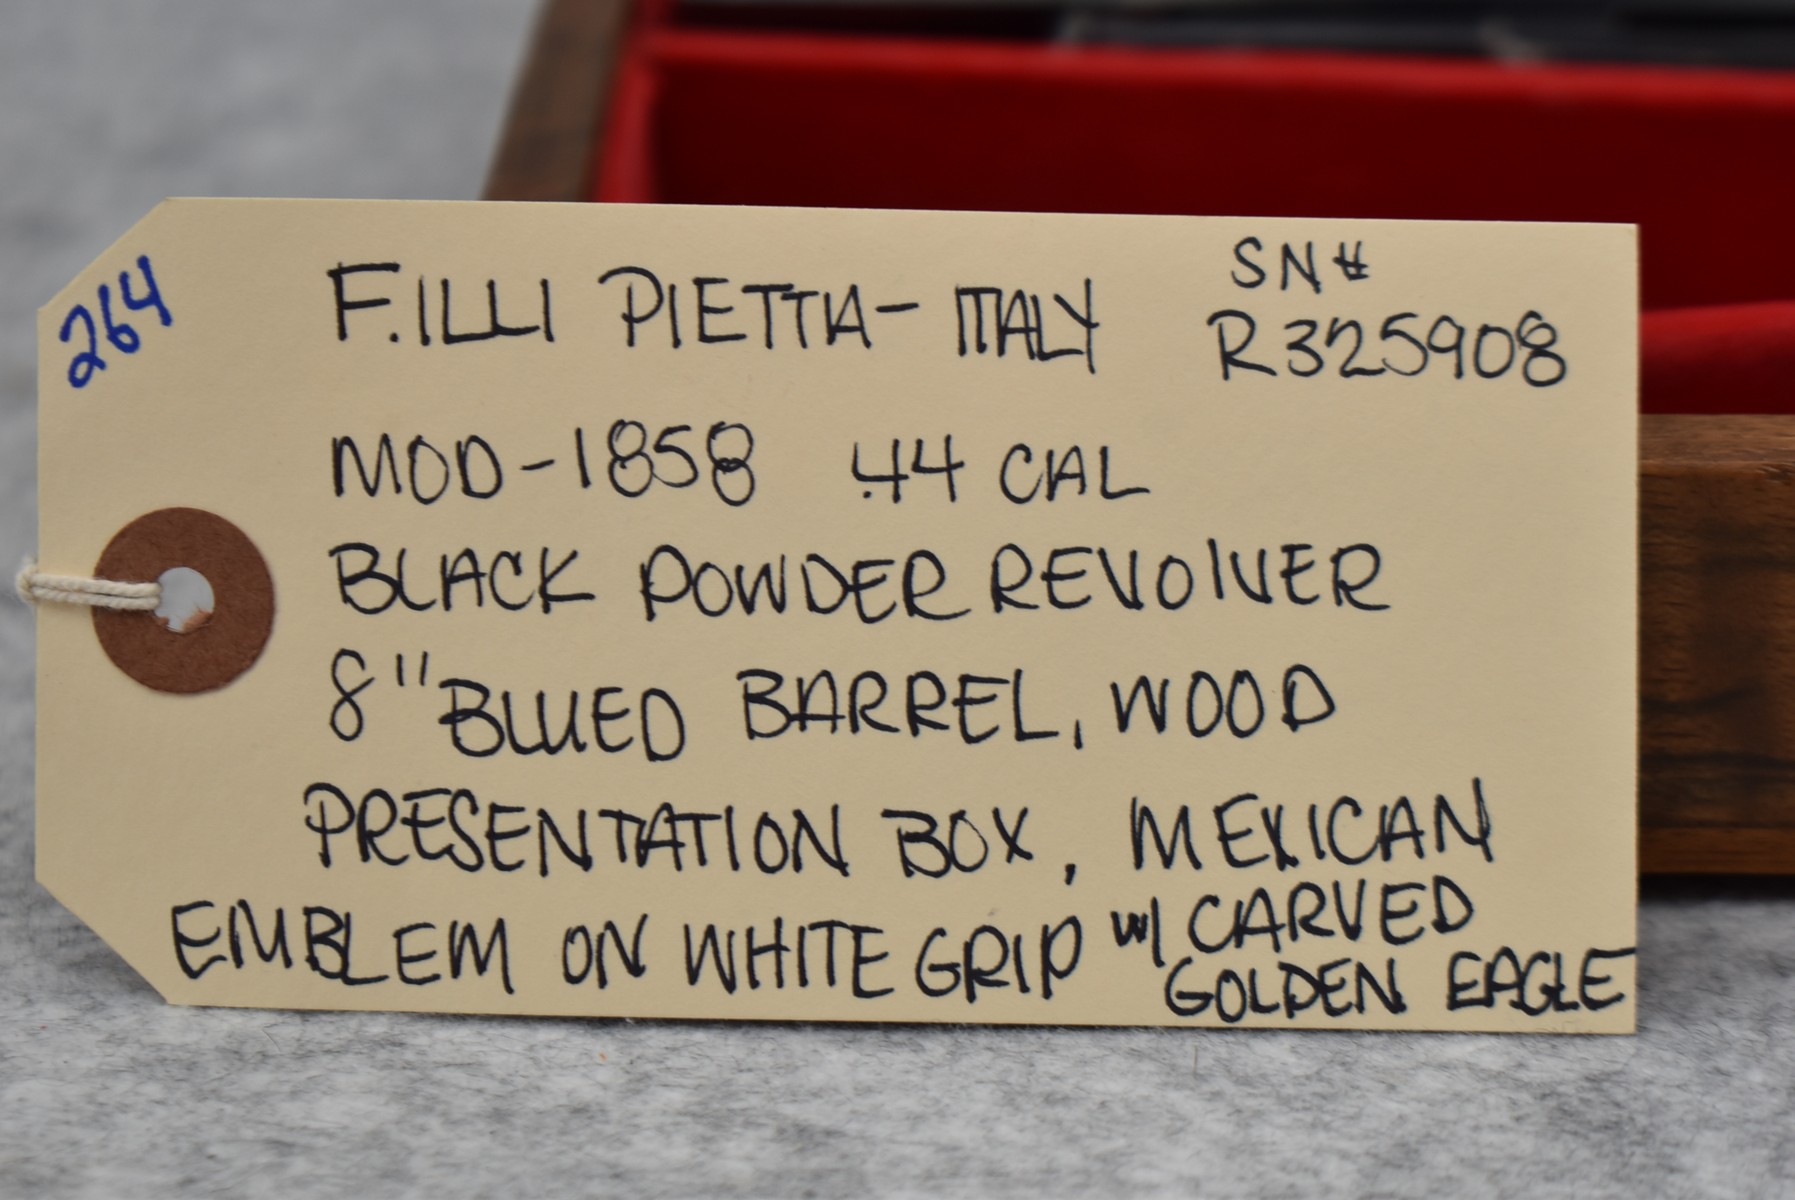 264
F.ILLI PIETTA - ITALY
SN#
R325908
MOD - 1858 .44 CAL
BLACK POWDER REVOLVER
8" BLUED BARREL, WOOD
PRESENTATION BOX, MEXICAN
EMBLEM ON WHITE GRIP W/ CARVED
GOLDEN EAGLE